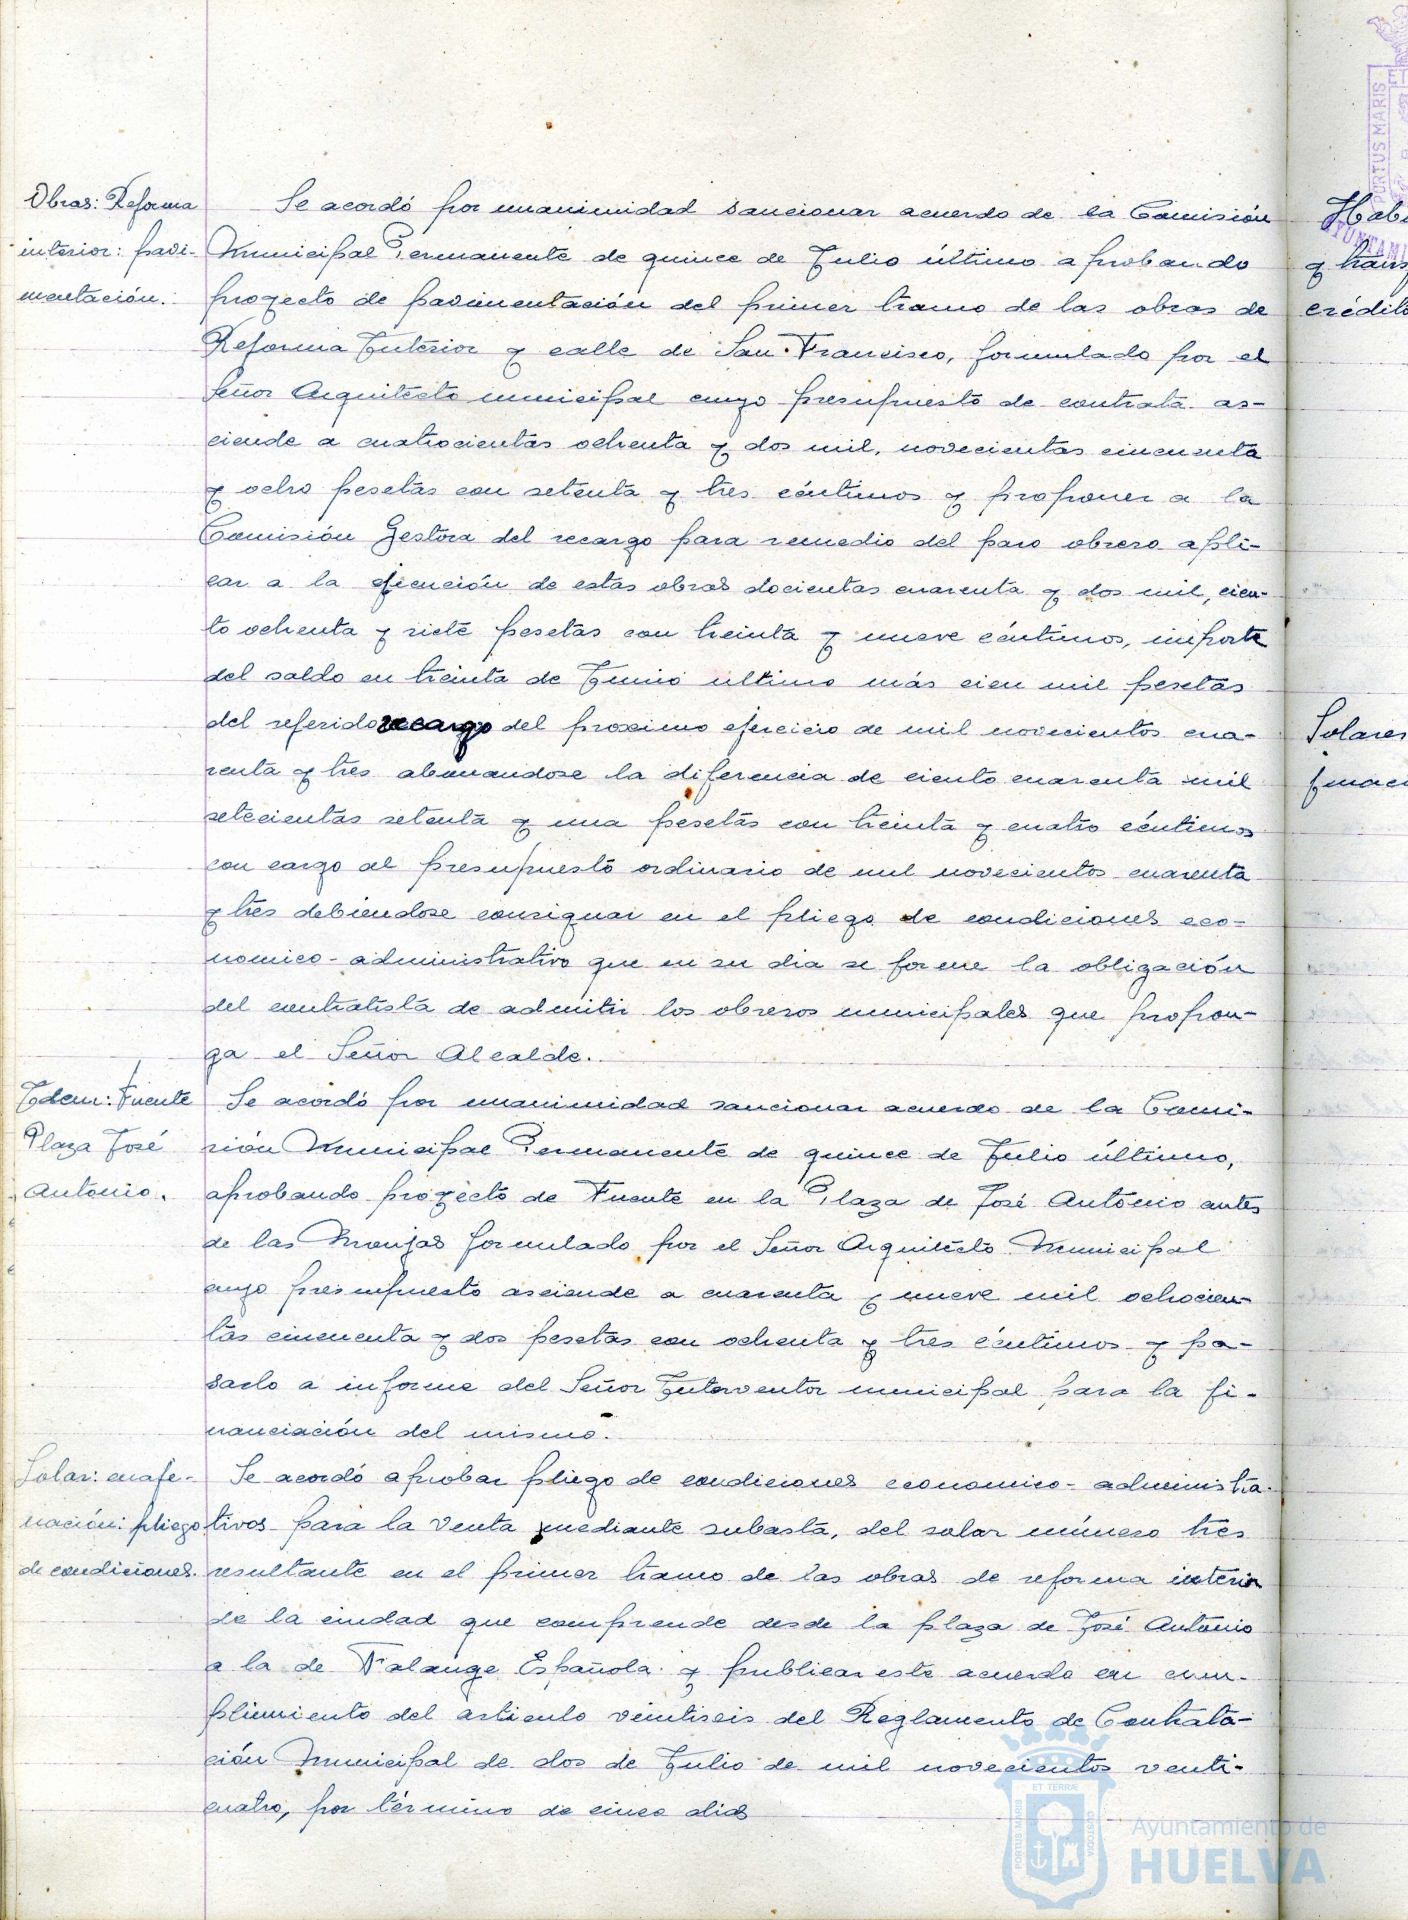 Obras: Reforma
interior: pavi-
mentación.
Se acordó por unanimidad sancionar acuerdo de la Comisión
Municipal Permanente de quince de Julio último aprobando
proyecto de pavimentación del primer tramo de las obras de
Reforma Interior y calle de San Francisco, formulado por el
Señor Arquitecto municipal cuyo presupuesto de contrata as-
ciende a cuatrocientas ochenta y dos mil, novecientas cincuenta
y ocho pesetas con setenta y tres céntimos y proponer a la
Comisión Gestora del recargo para remedio del paro obrero apli-
car a la ejecución de estas obras docientas cuarenta y dos mil, cien-
to ochenta y siete pesetas con treinta y nueve céntimos, importe
del saldo en treinta de Junio ultimo más cien mil pesetas
del referido recargo del proximo ejercicio de mil novecientos cua-
renta y tres abonandose la diferencia de ciento cuarenta mil
setecientas setenta y una pesetas con treinta y cuatro céntimos
con cargo al presupuesto ordinario de mil novecientos cuarenta
y tres debiendose consignar en el pliego de condiciones eco-
nomico-administrativo que en su dia se forme la obligación
del contratista de admitir los obreros municipales que propon-
ga el Señor Alcalde.
Idem: Fuente
Plaza José
Antonio.
Se acordó por unanimidad sancionar acuerdo de la Comi-
sión Municipal Permanente de quince de Julio último,
aprobando proyecto de Fuente en la Plaza de José Antonio antes
de las Monjas formulado por el Señor Arquitecto Municipal
cuyo presupuesto asciende a cuarenta y nueve mil ochocien-
tas cincuenta y dos pesetas con ochenta y tres céntimos y pa-
sarlo a informe del Señor Interventor municipal para la fi-
nanciación del mismo.
Solar: enaje-
nación: pliego
de condiciones.
Se acordó aprobar pliego de condiciones economico-administra-
tivos para la venta mediante subasta, del solar número tres
resultante en el primer tramo de las obras de reforma interior
de la ciudad que comprende desde la plaza de José Antonio
a la de Falange Española y publicar este acuerdo en cum-
plimiento del articulo veintiseis del Reglamento de Contrata-
ción Municipal de dos de Julio de mil novecientos venti-
cuatro, por término de cinco dias
Habi
y trans
crédito
Solares
PORTUS MARIS
ET
AYUNTAMI
ET TERRÆ
PORTUS MARIS
CUSTODIA
Ayuntamiento de
HUELVA